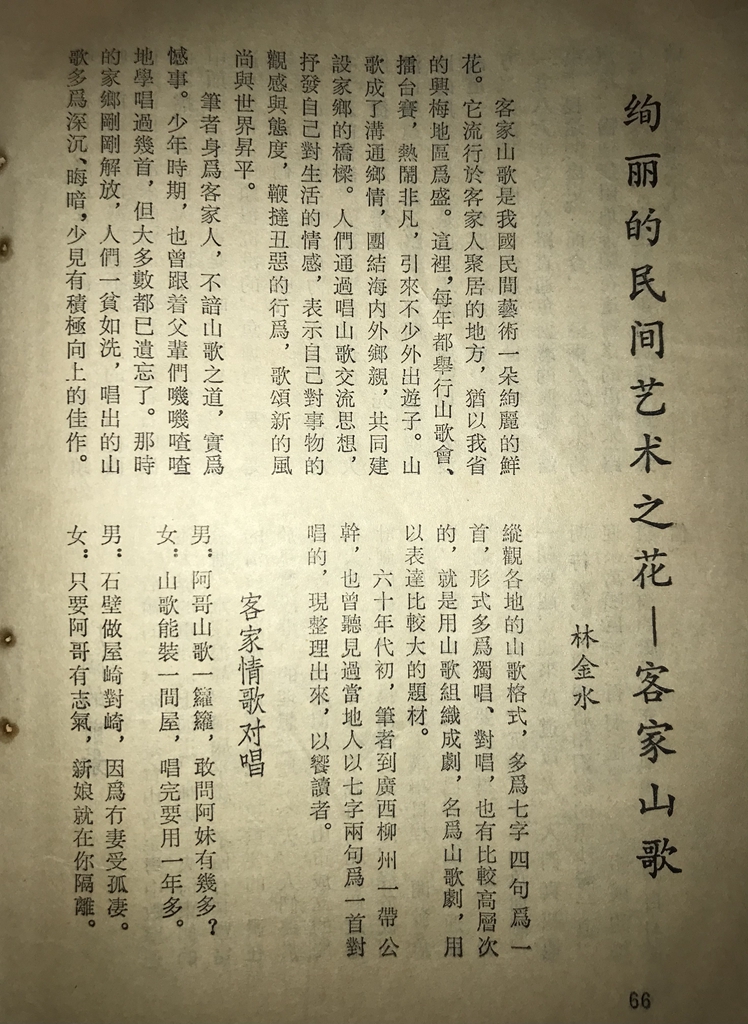 绚丽的民间艺术之花—客家山歌
林金水
客家山歌是我國民間藝術一朵絢麗的鮮
花。它流行於客家人聚居的地方，猶以我省
的興梅地區爲盛。這裡，每年都舉行山歌會、
擂台賽，熱鬧非凡，引來不少外出遊子。山
歌成了溝通鄉情，團結海内外鄉親，共同建
設家鄉的橋樑。人們通過唱山歌交流思想，
抒發自己對生活的情感，表示自己對事物的
觀感與態度，鞭撻丑惡的行爲，歌頌新的風
尚與世界昇平。
筆者身爲客家人，不諳山歌之道，實爲
憾事。少年時期，也曾跟着父輩們嘰嘰喳喳
地學唱過幾首，但大多數都已遺忘了。那時
的家鄉剛剛解放，人們一貧如洗，唱出的山
歌多爲深沉、晦暗，少見有積極向上的佳作。
縱觀各地的山歌格式，多爲七字四句爲一
首，形式多爲獨唱、對唱，也有比較高層次
的，就是用山歌組織成劇，名爲山歌劇，用
以表達比較大的題材。
六十年代初，筆者到廣西柳州一帶公
幹，也曾聽見過當地人以七字兩句爲一首對
唱的，現整理出來，以饗讀者。
客家情歌对唱
男：阿哥山歌一籮籮，敢問阿妹有幾多？
女：山歌能裝一間屋，唱完要用一年多。
男：石壁做屋崎對崎，因爲冇妻受孤凄。
女：只要阿哥有志氣，新娘就在你隔離。
66